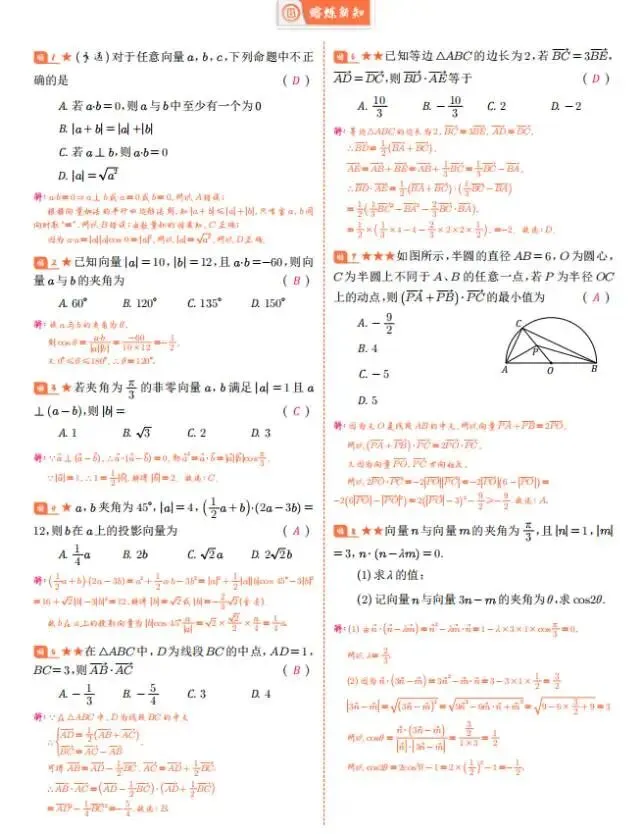 B 略炼新知
题 1 ★ (多选) 对于任意向量 a, b, c, 下列命题中不正
确的是 ( D )
A. 若 a·b=0, 则 a 与 b 中至少有一个为 0
B. |a+b|=|a|+|b|
C. 若 a⊥b, 则 a·b=0
D. |a|=√a²
解: a·b=0⇒a⊥b 或 a=0 或 b=0, 所以 A 错误;
根据向量加法的平行四边形法则, 知 |a+b|≤|a|+|b|, 只有当 a, b 同
向时取“=”, 所以 B 错误; 由数量积的性质知, C 正确;
因为 a·a=|a||a|cos 0=|a|², 所以 |a|=√a², 所以 D 正确.
题 2 ★ 已知向量 |a|=10, |b|=12, 且 a·b=-60, 则向
量 a 与 b 的夹角为 ( B )
A. 60° B. 120° C. 135° D. 150°
解: 设 a 与 b 的夹角为 θ,
则 cos θ=a·b/(|a||b|)=-60/(10×12)=-1/2,
又 0°≤θ≤180°, ∴θ=120°.
题 3 ★ 若夹角为 π/3 的非零向量 a, b 满足 |a|=1 且 a
⊥(a-b), 则 |b|= ( C )
A. 1 B. √3 C. 2 D. 3
解: ∵a⊥(a-b), ∴a·(a-b)=0, 即 a²=a·b=|a||b|cos π/3,
∵|a|=1, ∴1=1/2|b|, 解得 |b|=2. 故选: C.
题 4 ★ a, b 夹角为 45°, |a|=4, (1/2a+b)·(2a-3b)=
12, 则 b 在 a 上的投影向量为 ( A )
A. 1/4a B. 2b C. √2a D. 2√2b
解: (1/2a+b)·(2a-3b)=a²+1/2a·b-3b²=|a|²+1/2|a||b|cos 45°-3|b|²
=16+√2|b|-3|b|²=12, 解得 |b|=√2 或 |b|=-2/3√2(舍去)
故 b 在 a 上的投影向量为 |b|cos 45°·a/|a|=√2×√2/2×a/4=1/4a.
题 5 ★★ 在 △ABC 中, D 为线段 BC 的中点, AD=1,
BC=3, 则 AB·AC ( B )
A. -1/3 B. -5/4 C. 3 D. 4
解: ∵在 △ABC 中, D 为线段 BC 的中点
∴{AD=1/2(AB+AC)
BC=AC-AB,
可得 AB=AD-1/2BC, AC=AD+1/2BC,
∴AB·AC=(AD-1/2BC)·(AD+1/2BC)
=AD²-1/4BC²=-5/4. 故选: B.
题 6 ★★ 已知等边 △ABC 的边长为 2, 若 BC=3BE,
AD=DC, 则 BD·AE 等于 ( D )
A. 10/3 B. -10/3 C. 2 D. -2
解: 等边△ABC 的边长为 2, BC=3BE, AD=DC,
∴BD=1/2(BA+BC),
AE=AB+BE=AB+1/3BC=1/3BC-BA,
∴BD·AE=1/2(BA+BC)·(1/3BC-BA)
=1/2(1/3BC²-BA²-2/3BC·BA),
=1/2×(1/3×4-4-2/3×2×2×1/2), =-2. 故选: D.
题 7 ★★★ 如图所示, 半圆的直径 AB=6, O 为圆心,
C 为半圆上不同于 A、B 的任意一点, 若 P 为半径 OC
上的动点, 则 (PA+PB)·PC 的最小值为 ( A )
A. -9/2
B. 4
C. -5
D. 5
C
P
A O B
解: 因为 O 是线段 AB 的中点, 所以向量 PA+PB=2PO,
所以 (PA+PB)·PC=2PO·PC,
又因为向量 PO, PC 方向相反,
所以, 2PO·PC=-2|PO||PC|=-2|PO|(6-|PO|)=
-2(6|PO|-|PO|²)=2(|PO|-3)²-9/2≥-9/2. 故选: A.
题 8 ★★ 向量 n 与向量 m 的夹角为 π/3, 且 |n|=1, |m|
=3, n·(n-λm)=0.
(1) 求 λ 的值;
(2) 记向量 n 与向量 3n-m 的夹角为 θ, 求 cos2θ.
解: (1) 由 n·(n-λm)=n²-λm·n=1-λ×3×1×cos π/3=0,
所以 λ=2/3.
(2) 因为 n·(3n-m)=3n²-m·n=3-3×1×1/2=3/2
|3n-m|=√(3n-m)²=√9n²-6m·n+m²=√9-6×3/2+9=3
所以 cosθ=n·(3n-m)/(|n|·|3n-m|)=(3/2)/(1×3)=1/2
所以, cos2θ=2cos²θ-1=2×(1/2)²-1=-1/2.